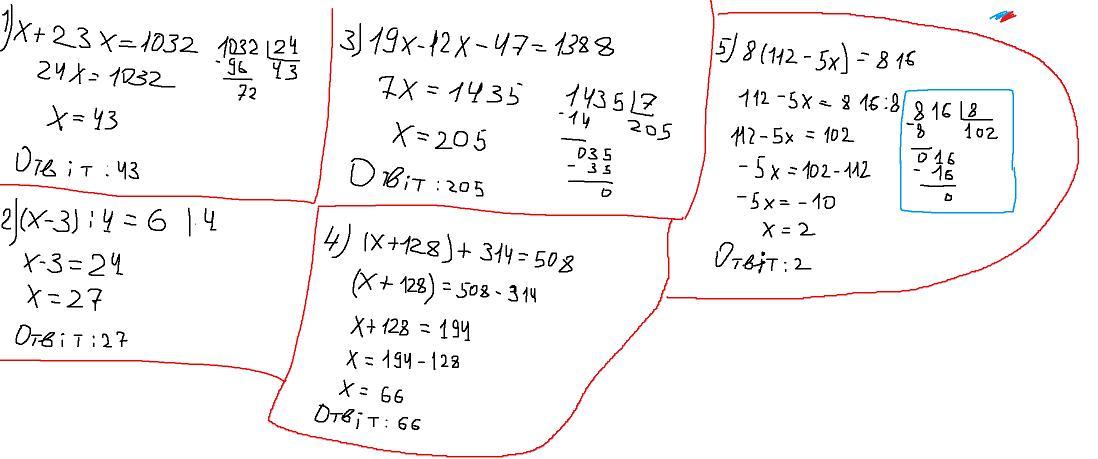 1) x+23x=1032
24x=1032
x=43
Отвіт:43
1032 24
- 96 43
72
2) (x-3):4=6 |·4
x-3=24
x=27
Отвіт:27
3) 19x-12x-47=1388
7x=1435
x=205
Отвіт:205
1435 7
-14 205
035
- 35
0
4) (x+128)+314=508
(x+128)=508-314
x+128=194
x=194-128
x=66
Отвіт:66
5) 8(112-5x)=816
112-5x=816:8
112-5x=102
-5x=102-112
-5x=-10
x=2
Отвіт:2
816 8
-8 102
016
- 16
0